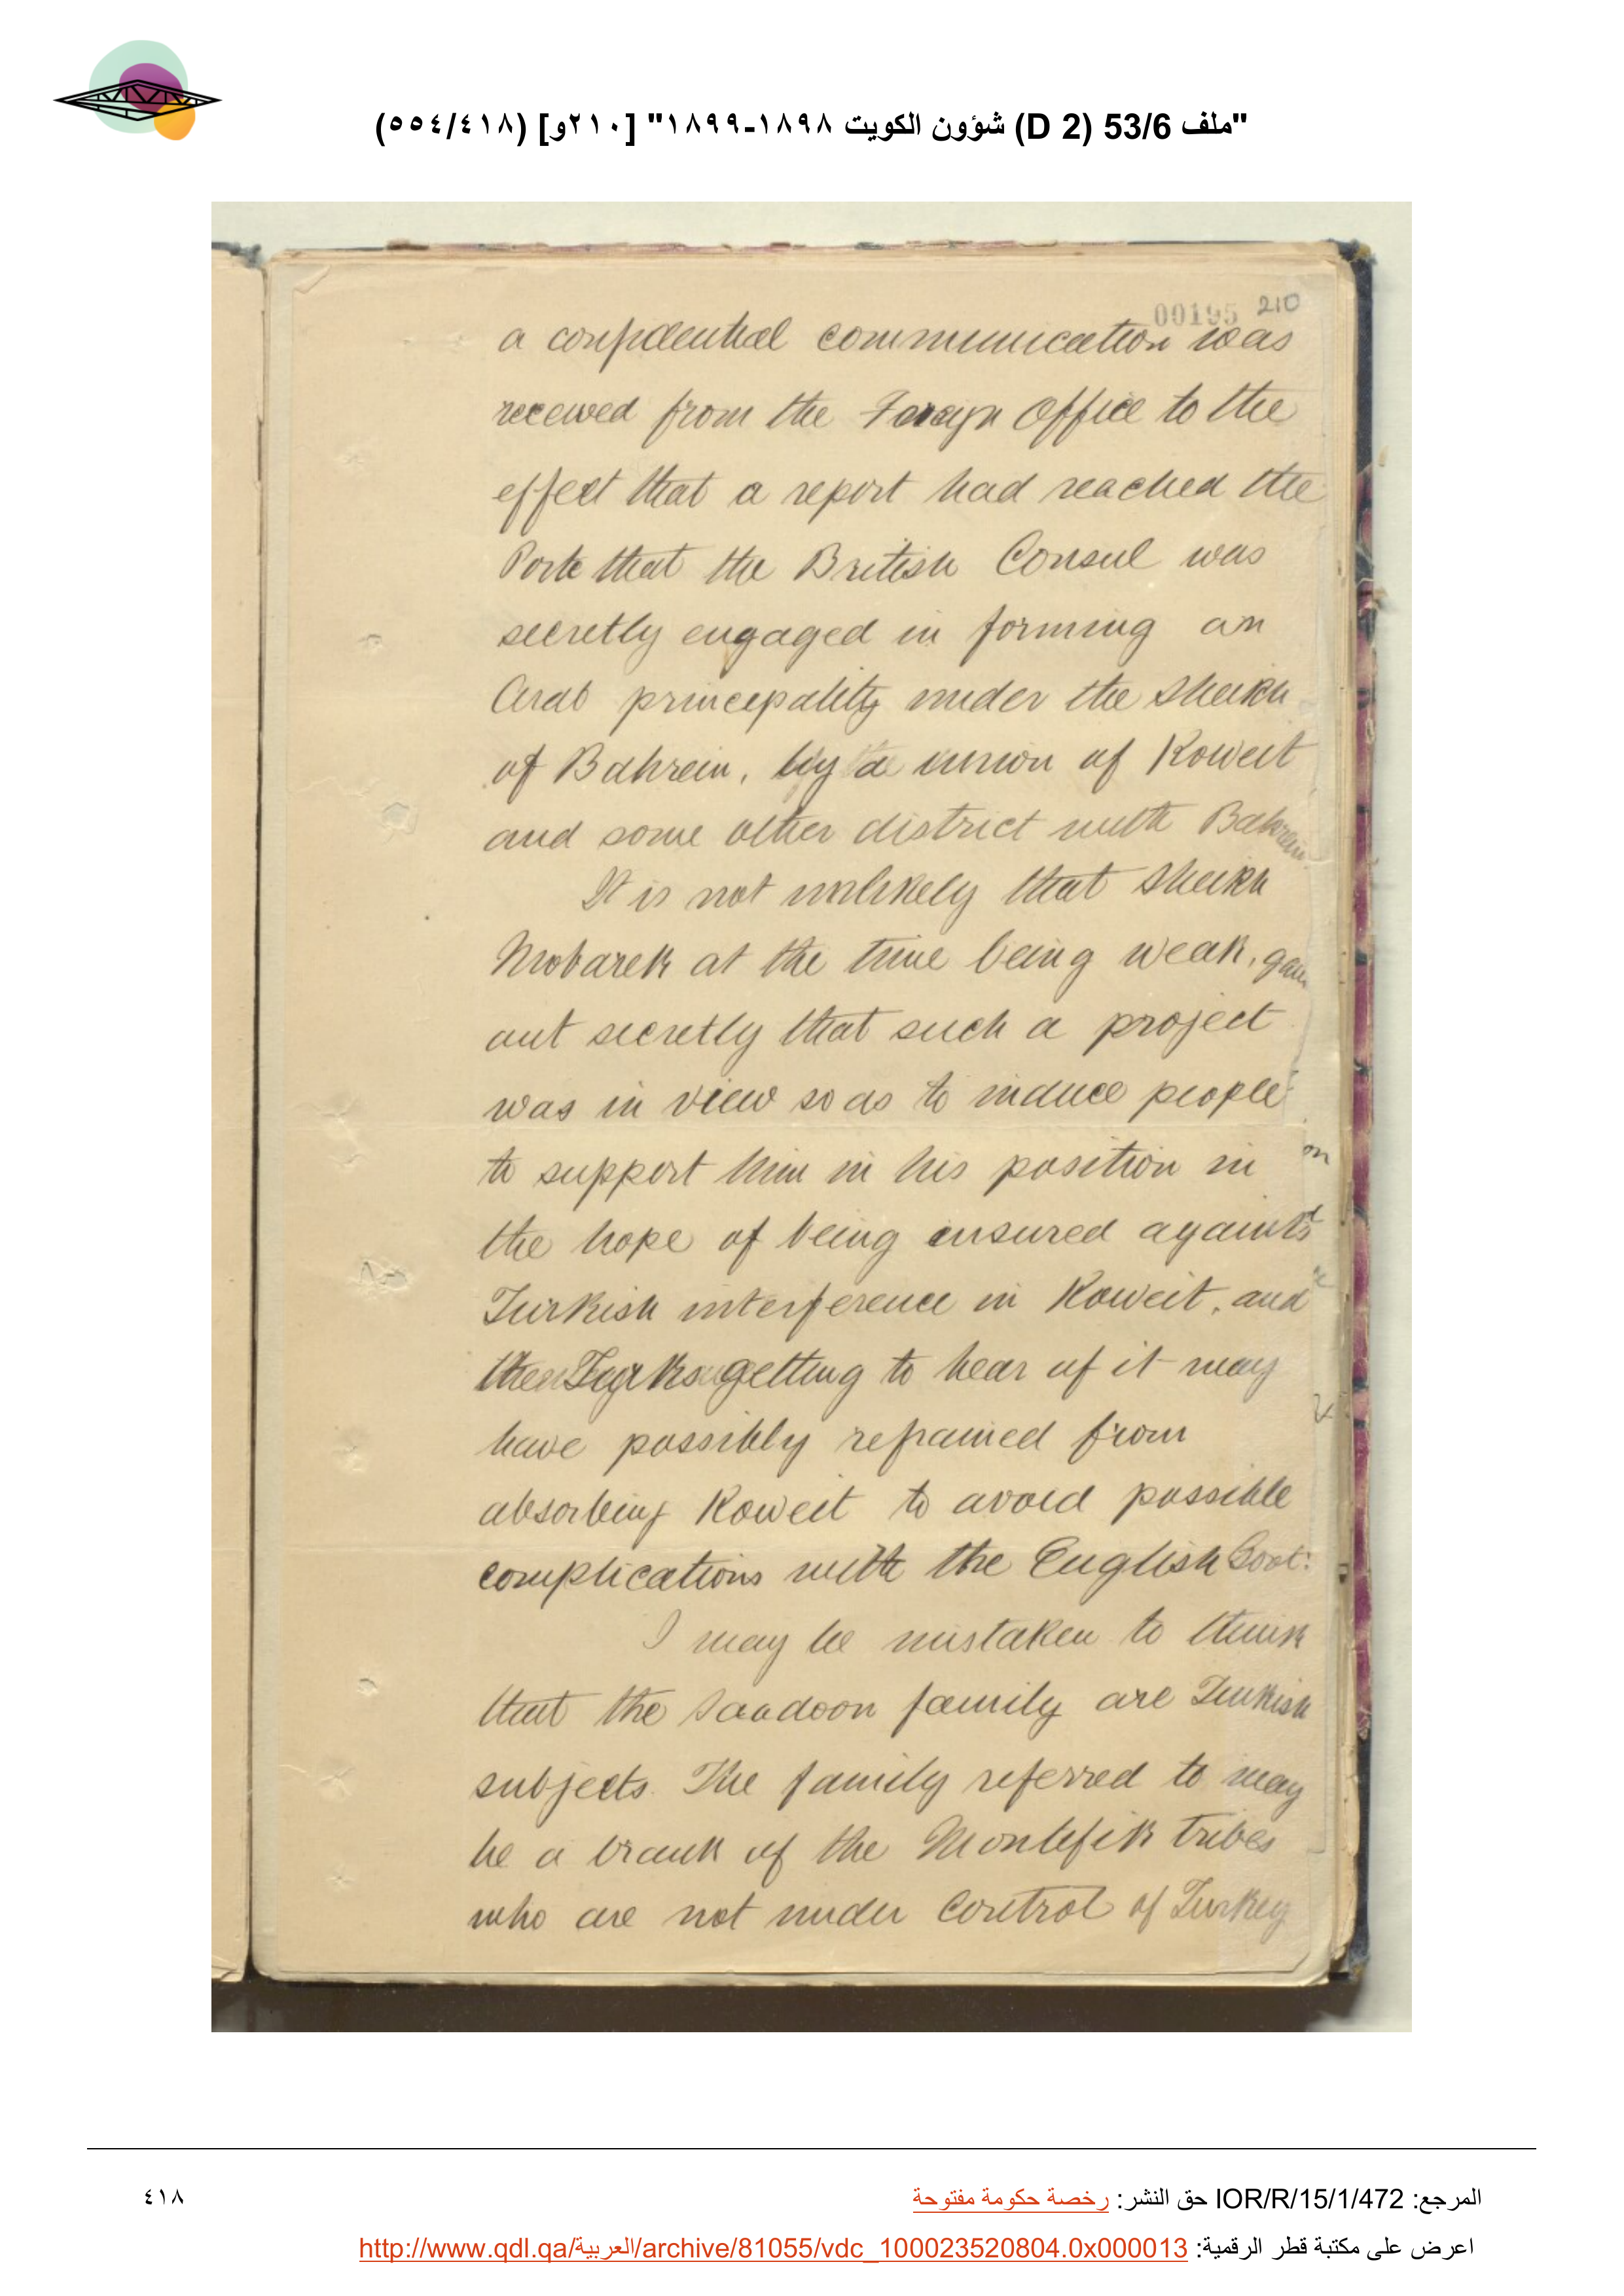 "ملف 53/6 (D 2) شؤون الكويت ١٨٩٨-١٨٩٩" [٢١٠و] (٥٥٤/٤١٨)
00195 210
a confidential communication was
received from the Foreign Office to the
effect that a report had reached the
Porte that the British Consul was
secretly engaged in forming an
Arab principality under the Sheikh
of Bahrein, by a union of Koweit
and some other district with Bahrein.
It is not unlikely that Sheikh
Mobarek at the time being weak, gave
out secretly that such a project
was in view so as to induce people
to support him in his position in
the hope of being insured against
Turkish interference in Koweit, and
the Turks getting to hear of it may
have possibly refrained from
absorbing Koweit to avoid possible
complications with the English Govt:
I may be mistaken to think
that the Saadoon family are Turkish
subjects. The family referred to may
be a branch of the Montefik tribes
who are not under control of Turkey
المرجع: IOR/R/15/1/472 حق النشر: رخصة حكومة مفتوحة
٤١٨
اعرض على مكتبة قطر الرقمية: http://www.qdl.qa/العربية/archive/81055/vdc_100023520804.0x000013